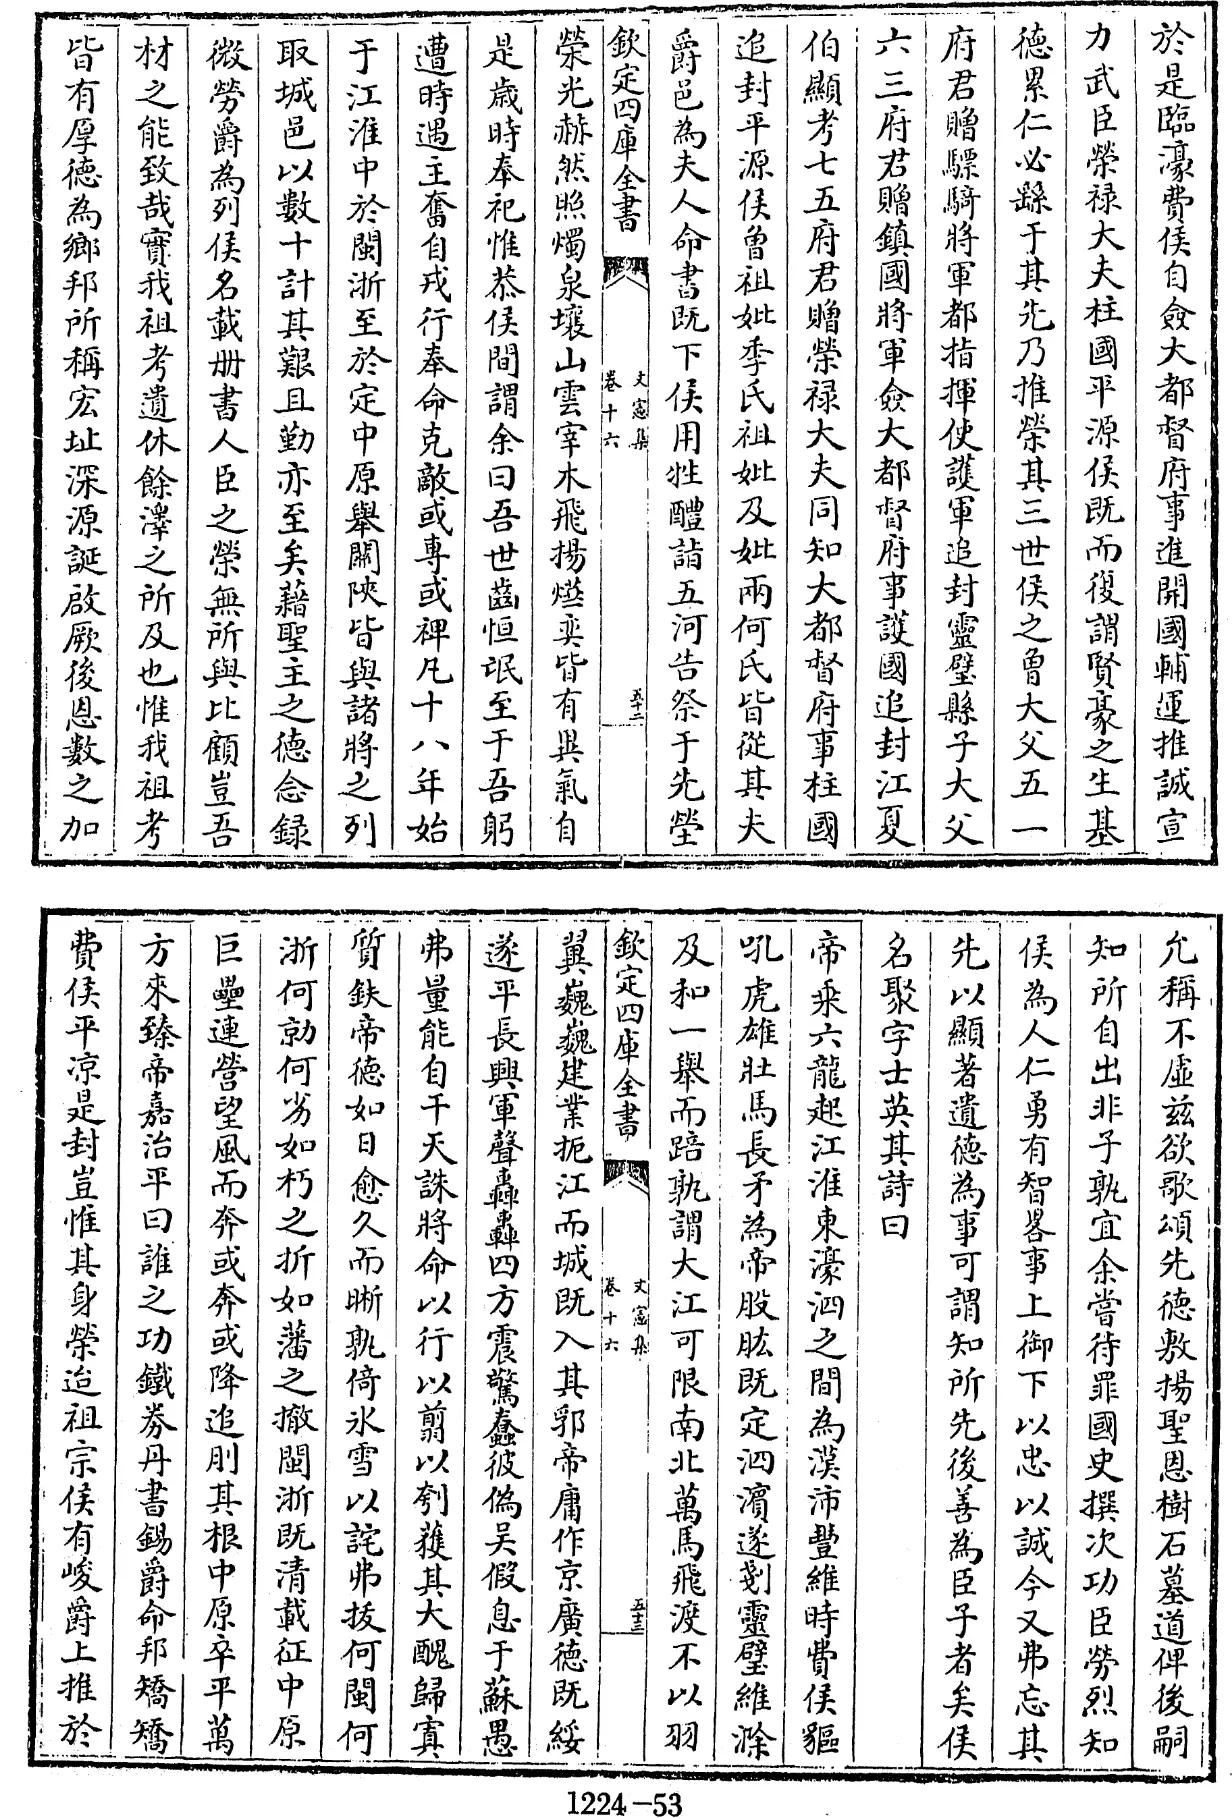 於是臨濠費侯自僉大都督府事進開國輔運推誠宣
力武臣榮祿大夫柱國平源侯既而復謂賢豪之生基
德累仁必繇于其先乃推榮其三世侯之曾大父五一
府君贈驃騎將軍都指揮使護軍追封靈璧縣子大父
六三府君贈鎮國將軍僉大都督府事護國追封江夏
伯顯考七五府君贈榮祿大夫同知大都督府事柱國
追封平源侯曾祖妣季氏祖妣及妣兩何氏皆從其夫
爵邑為夫人命書既下侯用牲醴詣五河告祭于先塋
欽定四庫全書
文憲集
卷十六
五十二
榮光赫然照燭泉壤山雲宰木飛揚燁奕皆有異氣自
是歲時奉祀惟恭侯間謂余曰吾世齒恒氓至于吾躬
遭時遇主奮自戎行奉命克敵或專或裨凡十八年始
于江淮中於閩浙至於定中原舉關陝皆與諸將之列
取城邑以數十計其艱且勤亦至矣藉聖主之德念錄
微勞爵為列侯名載册書人臣之榮無所與比顧豈吾
材之能致哉實我祖考遺休餘澤之所及也惟我祖考
皆有厚德為鄉邦所稱宏址深源誕啟厥後恩數之加
允稱不虛兹欲歌頌先德敷揚聖恩樹石墓道俾後嗣
知所自出非子孰宜余嘗待罪國史撰次功臣勞烈知
侯為人仁勇有智畧事上御下以忠以誠今又弗忘其
先以顯著遺德為事可謂知所先後善為臣子者矣侯
名聚字士英其詩曰
帝乘六龍起江淮東濠泗之間為漢沛豐維時費侯驅
吼虎雄壯馬長矛為帝股肱既定泗濱遂剗靈璧維滁
及和一舉而踣孰謂大江可限南北萬馬飛渡不以羽
欽定四庫全書
文憲集
卷十六
五十三
翼巍巍建業扼江而城既入其郛帝庸作京廣德既綏
遂平長興軍聲轟轟四方震驚蠢彼偽吴假息于蘇愚
弗量能自干天誅將命以行以翦以刳獲其大醜歸寘
質鈇帝德如日愈久而晰孰倚氷雪以詫弗拔何閩何
浙何勍何劣如朽之折如藩之撤閩浙既清載征中原
巨壘連營望風而奔或奔或降追刖其根中原卒平萬
方來臻帝嘉治平曰誰之功鐵券丹書錫爵命邦矯矯
費侯平凉是封豈惟其身榮迨祖宗侯有峻爵上推於
1224-53